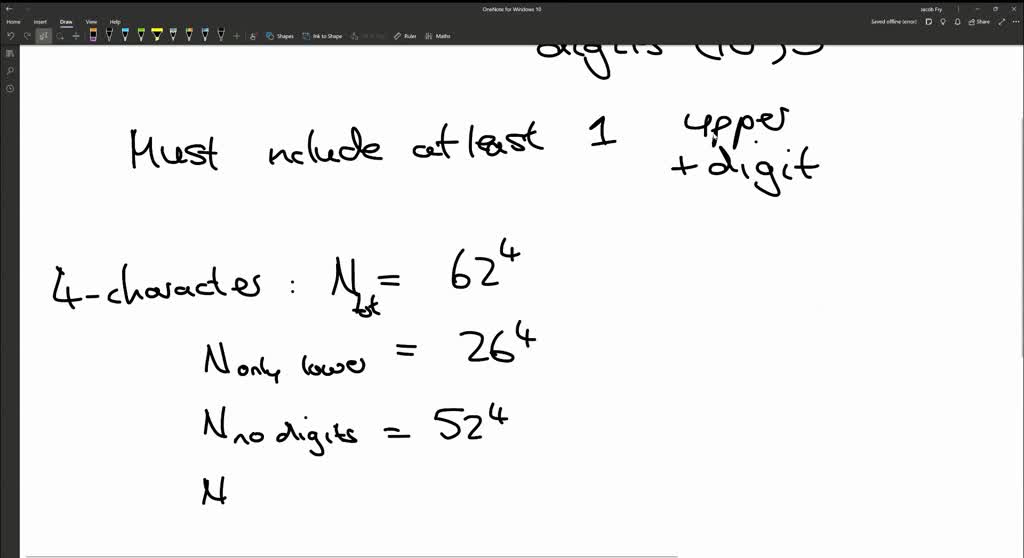 OneNote for Windows 10
Jacob Fry
Home Insert Draw View Help
Saved offline (error) Share
Shapes Ink to Shape Ruler Maths
digits (10)
Must nclude at least 1 upper
+ digit
4-character : N tot = 62^4
N only lower = 26^4
N no digits = 52^4
N